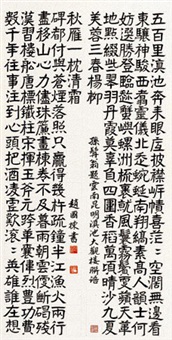 五百里滇池奔来眼底披襟岸幘喜茫茫空闊無邊看
東驤神駿西翥靈儀北走蜿蜒南翔縞素高人韻士何
妨選勝登臨趁蟹嶼螺洲梳裹就風鬟霧鬢更蘋天葦
地點綴些翠羽丹霞莫辜負四圍香稻萬頃晴沙九夏
芙蓉三春楊柳
孫髯翁題雲南昆明滇池大觀樓聯語
數千年往事注到心頭把酒凌虛歎滾滾英雄誰在想
漢習樓船唐標鐵柱宋揮玉斧元跨革囊偉烈豐功費
盡移山心力儘珠簾畫棟卷不及暮雨朝雲便斷碣殘
碑都付與蒼煙落照只贏得幾杵疏鐘半江漁火兩行
秋雁一枕清霜
趙國棟書